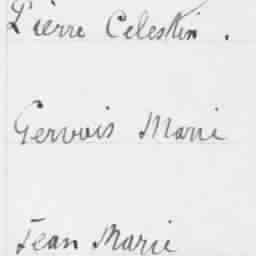 Pierre Celestin.
Gervais Marie
Jean Marie